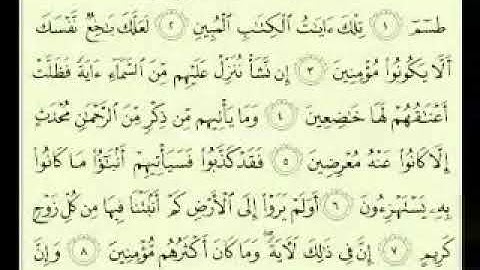 طسٓمٓ ١ تِلْكَ ءَايَٰتُ ٱلْكِتَٰبِ ٱلْمُبِينِ ٢ لَعَلَّكَ بَٰخِعٌ نَّفْسَكَ
أَلَّا يَكُونُوا۟ مُؤْمِنِينَ ٣ إِن نَّشَأْ نُنَزِّلْ عَلَيْهِم مِّنَ ٱلسَّمَآءِ ءَايَةً فَظَلَّتْ
أَعْنَٰقُهُمْ لَهَا خَٰضِعِينَ ٤ وَمَا يَأْتِيهِم مِّن ذِكْرٍ مِّنَ ٱلرَّحْمَٰنِ مُحْدَثٍ
إِلَّا كَانُوا۟ عَنْهُ مُعْرِضِينَ ٥ فَقَدْ كَذَّبُوا۟ فَسَيَأْتِيهِمْ أَنۢبَٰٓؤُا۟ مَا كَانُوا۟
بِهِۦ يَسْتَهْزِءُونَ ٦ أَوَلَمْ يَرَوْا۟ إِلَى ٱلْأَرْضِ كَمْ أَنۢبَتْنَا فِيهَا مِن كُلِّ زَوْجٍ
كَرِيمٍ ٧ إِنَّ فِى ذَٰلِكَ لَءَايَةً ۖ وَمَا كَانَ أَكْثَرُهُم مُّؤْمِنِينَ ٨ وَإِنَّ